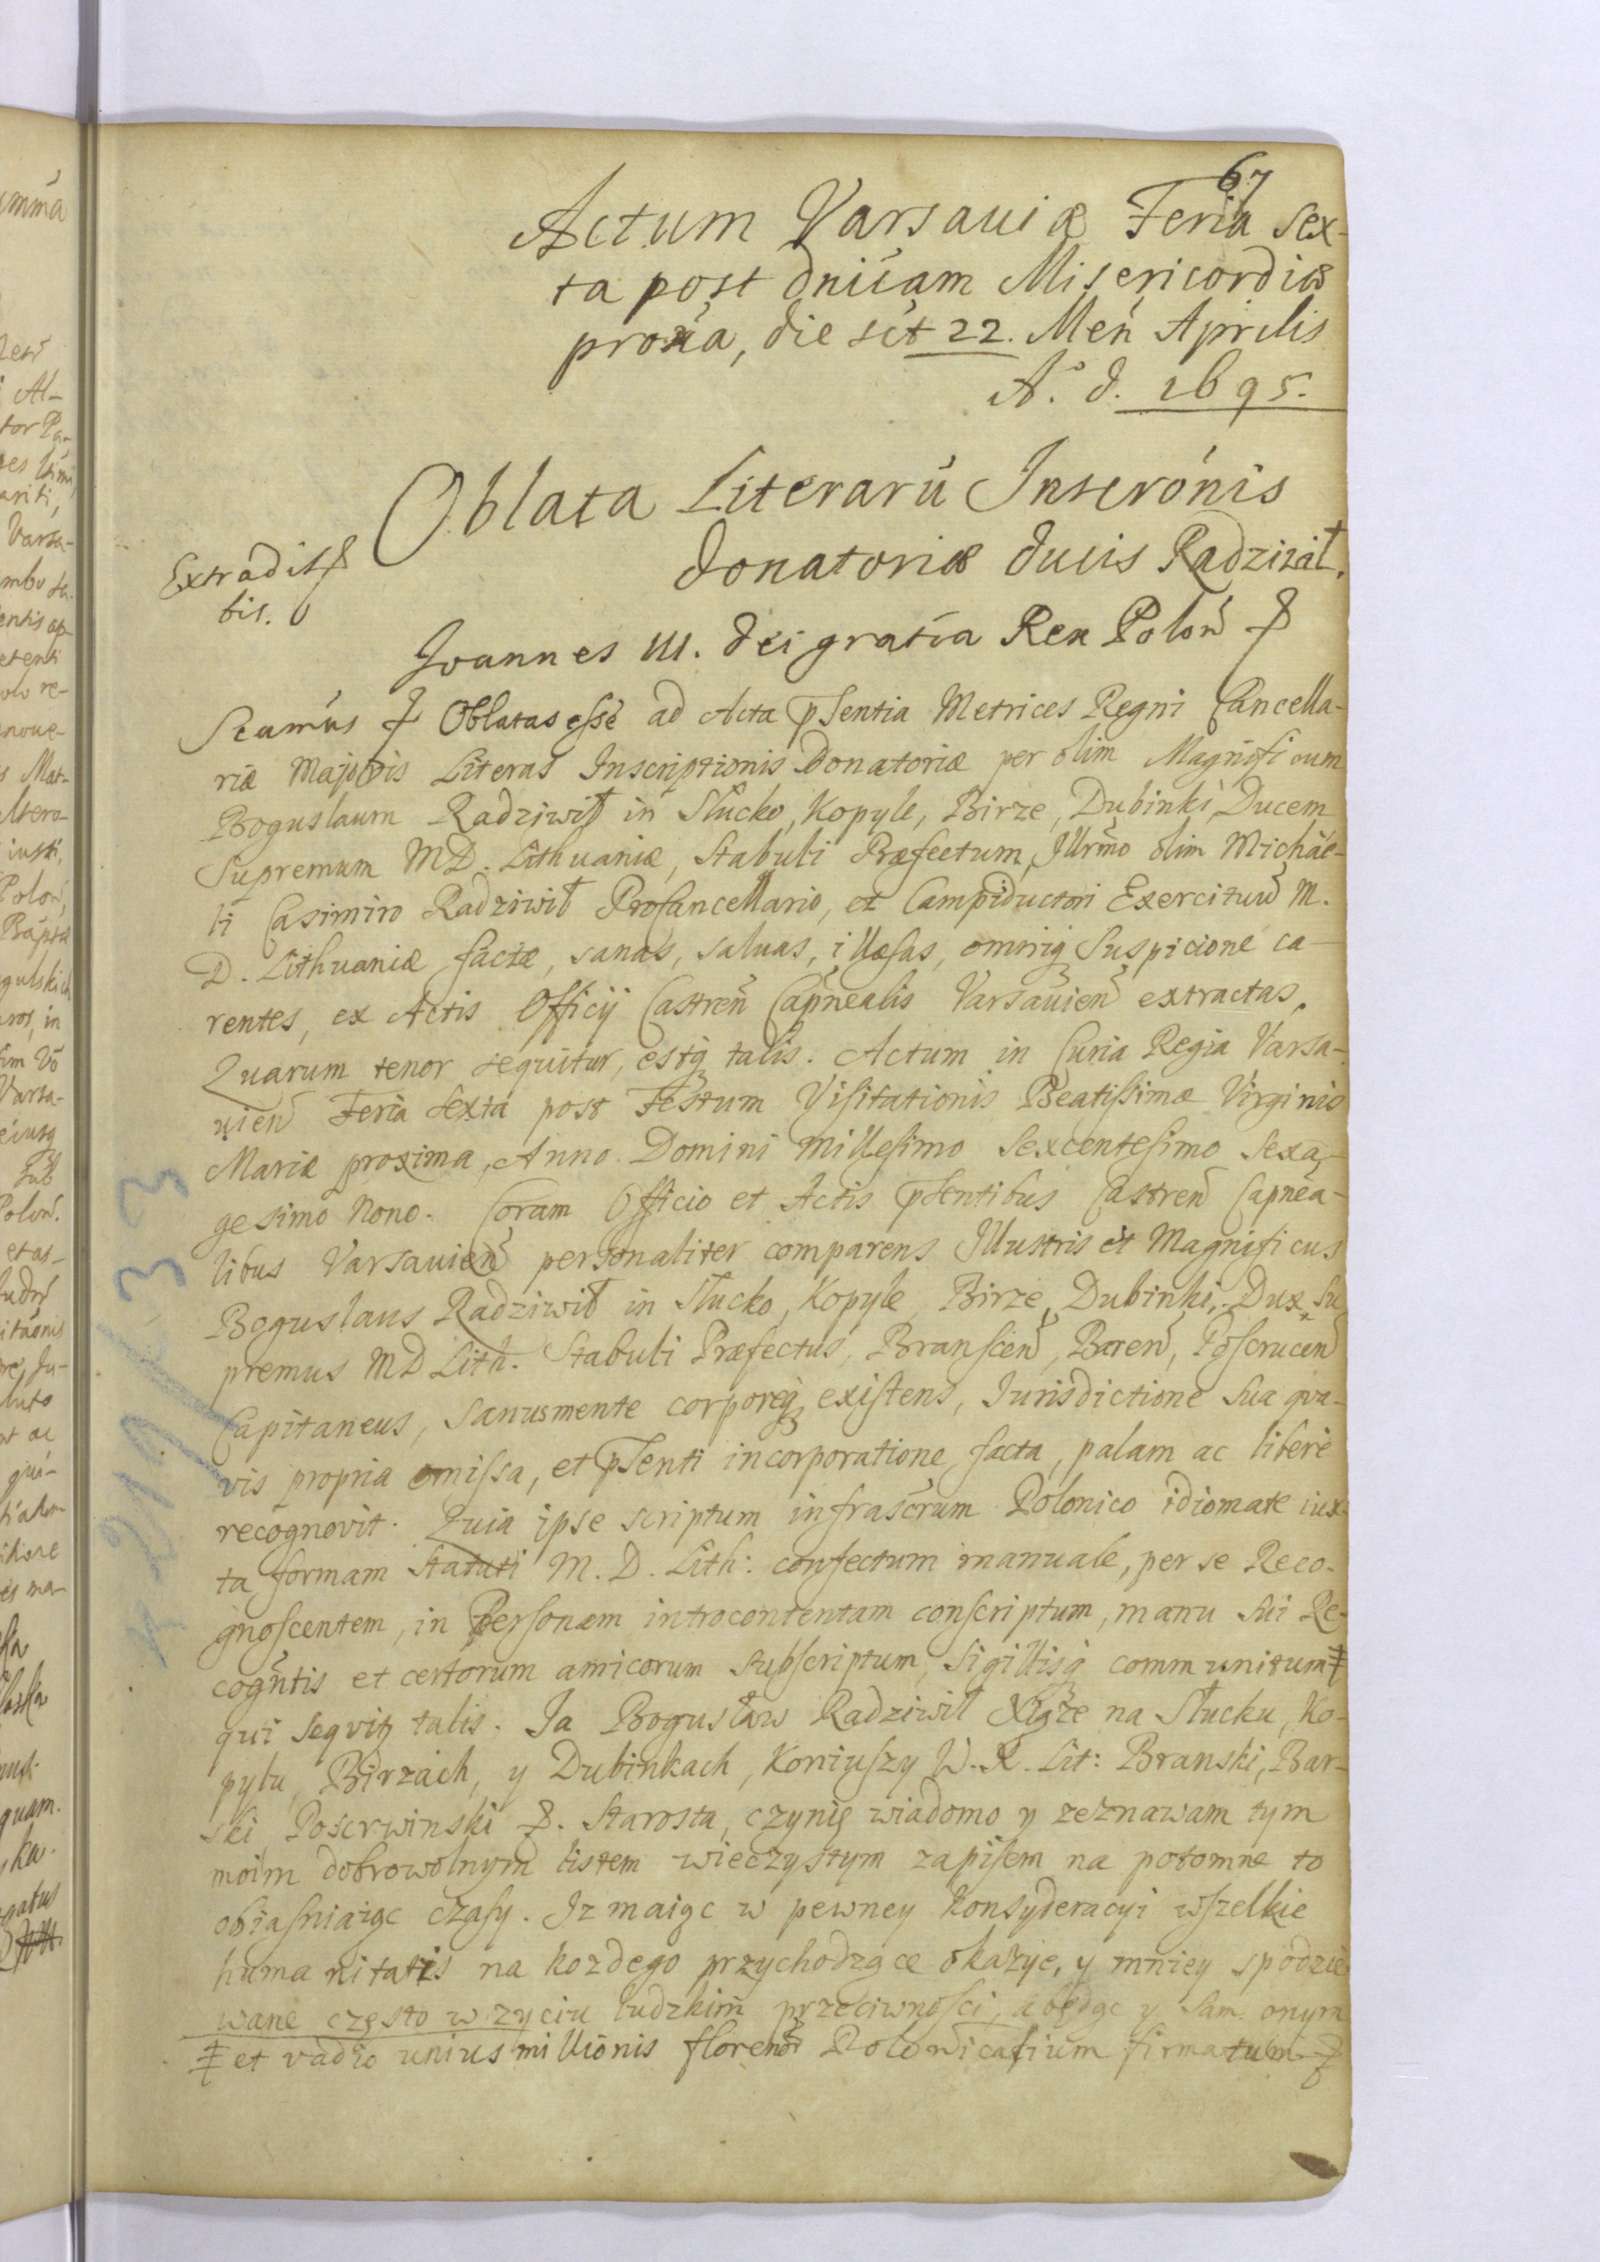 67
Actum Varsauiæ Feria Sex-
ta post dnicam Misericordiæ
proxa, die sct 22. Men Aprilis
A.° d. 1695.
Oblata Literarū Inscrónis
donatoriæ ducis Radziwił.
Extradit
bis.
Joannes III. dei gratia Rex Polon
Oblatas esse ad Acta pſentia Metrices Regni Cancella-
riæ Majoris Literas Inscriptionis Donatoriæ per olim Magnificum
Boguslaum Radziwił in Słucko, Kopyle, Birze, Dubinki, Ducem
Supremum MD. Lithuaniæ, Stabuli Præfectum, Illrmo olim Michae-
li Casimiro Radziwił Procancellario, et Campiductori Exercituū M.
D. Lithuaniæ factæ, sanas, saluas, illæſas, omniq Suspicione ca-
rentes, ex Actis Officij Castren Capnealis Varsauien extractas.
Quarum tenor sequitur, estq talis. Actum in Curia Regia Varsa-
uien Feria sexta post Festum Viſitationis Beatiſsimæ Virginis
Mariæ proxima, Anno Domini Milleſimo Sexcenteſimo Sexa-
gesimo Nono. Coram Officio et Actis pſentibus Castren Capnea-
libus Varsauien personaliter comparens Illustris et Magnificus
Boguslaus Radziwił in Słucko, Kopyle, Birze, Dubinki, Dux Su-
premus MD Lith. Stabuli Præfectus, Branſcen, Baren,
Capitaneus, sanus mente corporeq exiſtens, Jurisdictione sua qva-
vis propria omiſsa, et pſenti incorporatione facta, palam ac liberè
recognovit. Quia ipse scriptum infrascrum Polonico idiomate iux-
ta formam Statuti M. D. Lith: confectum manuale, per se Reco-
gnoſcentem, in Personam introcontentam conscriptum, manu sui Re-
cogntis et certorum amicorum subſcriptum, Sigillisq communitum ǂ
qui seqvitꝛ talis. Ja Bogusław Radziwił Xiąże na Słucku, Ko-
pylu, Birzach, y Dubinkach, Koniuſzy W. X. Lit: Branski, Bar-
ski Starosta, czynię wiadomo y zeznawam tym
moim dobrowolnym listem wieczystym zapiſem na potomne to
obiaſniaiąc czaſy. Iz maiąc w pewney konsyderacyi wſzelkie
humanitatis na kozdego przychodzące okazye, y mniey spodzie
wane często w zyciu ludzkim przeciwnoſci, a będąc y sam onym
ǂ et vadio unius millionis florenor Polonicalium firmatum